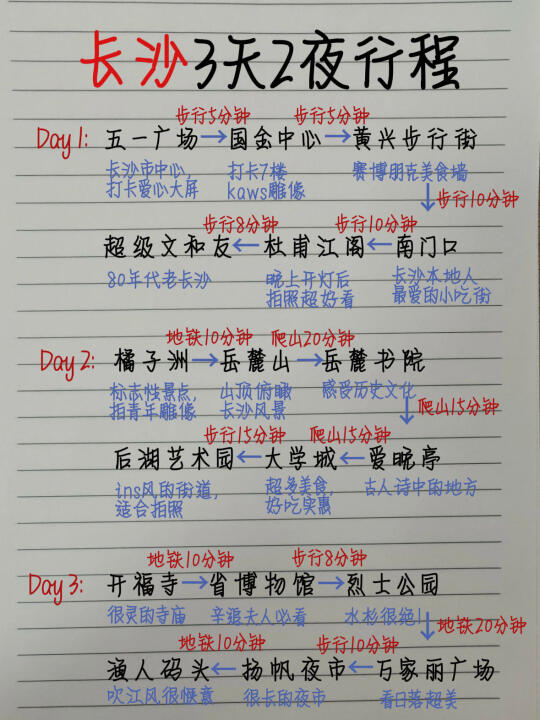 长沙3天2夜行程
步行5分钟 步行5分钟
Day1: 五一广场→国金中心→黄兴步行街
长沙市中心, 打卡7楼 赛博朋克美食墙
打卡爱心大屏 kaws雕像
步行10分钟
步行8分钟 步行10分钟
超级文和友←杜甫江阁←南门口
80年代老长沙 晚上开灯后 长沙本地人
拍照超好看 最爱的小吃街
地铁10分钟 爬山20分钟
Day2: 橘子洲→岳麓山→岳麓书院
标志性景点, 山顶俯瞰 感受历史文化
拍青年雕像 长沙风景
爬山15分钟
步行15分钟 爬山15分钟
后湖艺术园←大学城←爱晚亭
ins风的街道, 超多美食, 古人诗中的地方
适合拍照 好吃实惠
地铁10分钟 步行8分钟
Day3: 开福寺→省博物馆→烈士公园
很灵的寺庙 辛追夫人必看 水杉很绝!
地铁20分钟
地铁10分钟 步行10分钟
渔人码头←扬帆夜市←万家丽广场
吹江风很惬意 很长的夜市 看日落超美